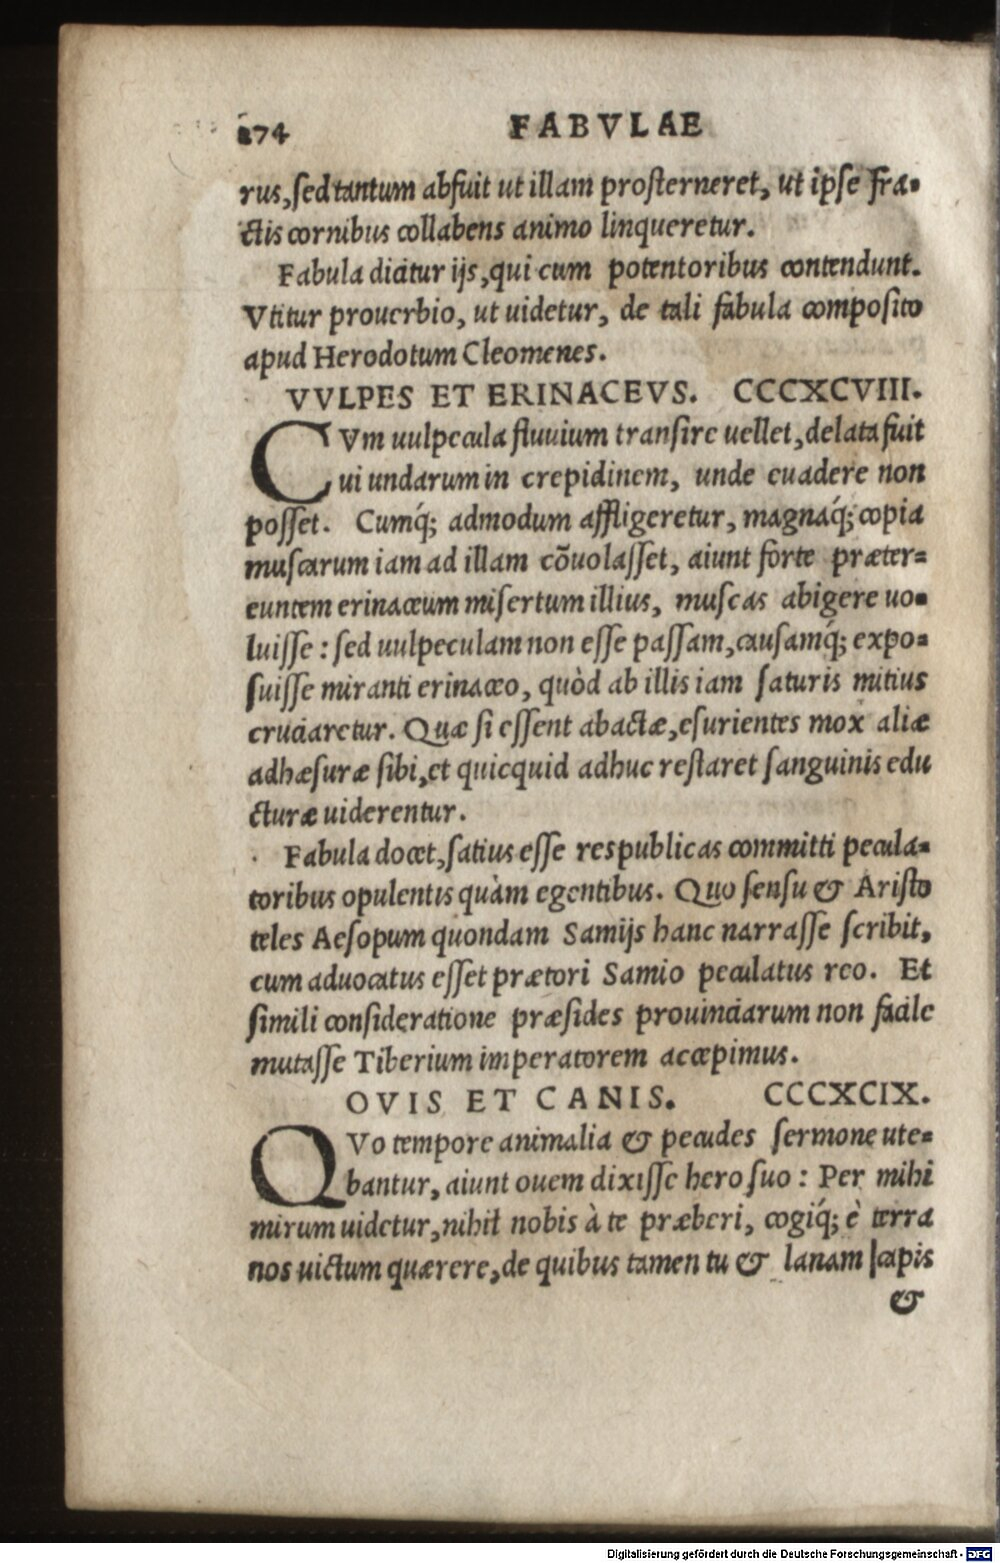 274 FABVLAE
rus, sed tantum abfuit ut illam prosterneret, ut ipse fra-
ctis cornibus collabens animo linqueretur.
Fabula dicitur ijs, qui cum potentoribus contendunt.
Vtitur prouerbio, ut uidetur, de tali fabula composito
apud Herodotum Cleomenes.
VVLPES ET ERINACEVS. CCCXCVIII.
CVm uulpecula fluuium transire uellet, delata fuit
ui undarum in crepidinem, unde euadere non
posset. Cumq́; admodum affligeretur, magnaq́; copia
muscarum iam ad illam cõuolasset, aiunt forte præter=
euntem erinaceum misertum illius, muscas abigere uo-
luisse : sed uulpeculam non esse passam, causamq́; expo-
suisse miranti erinaceo, quòd ab illis iam saturis mitius
cruciaretur. Quæ si essent abactæ, esurientes mox aliæ
adhæsuræ sibi, et quicquid adhuc restaret sanguinis edu
cturæ uiderentur.
Fabula docet, satius esse respublicas committi pecula=
toribus opulentis quàm egentibus. Quo sensu & Aristo
teles Aesopum quondam Samijs hanc narrasse scribit,
cum aduocatus esset prætori Samio peculatus reo. Et
simili consideratione præsides prouinciarum non facile
mutasse Tiberium imperatorem accepimus.
OVIS ET CANIS. CCCXCIX.
QVo tempore animalia & pecudes sermone ute=
bantur, aiunt ouem dixisse hero suo : Per mihi
mirum uidetur, nihil nobis à te præberi, cogiq́; è terra
nos uictum quærere, de quibus tamen tu & lanam capis
&
Digitalisierung gefördert durch die Deutsche Forschungsgemeinschaft - DFG